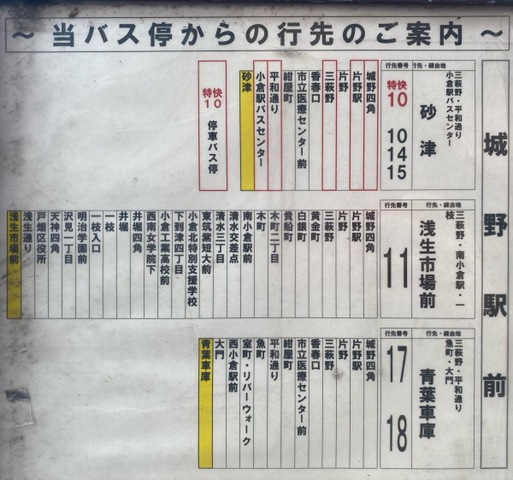 ～ 当バス停からの行先のご案内 ～
城野駅前
行先番号
行先・経由地
特快
10
10
14
15
三萩野・平和通り
小倉駅バスセンター
砂津
城野四角
片野駅
片野
三萩野
香春口
市立医療センター前
紺屋町
平和通り
小倉駅バスセンター
砂津
特快
10
停車バス停
行先番号
行先・経由地
11
三萩野・南小倉駅・一
枝
浅生市場前
城野四角
片野駅
片野
三萩野
黄金町
白銀町
貴船町
木町二丁目
木町
南小倉駅前
清水交差点
清水三丁目
東筑紫短大前
小倉北特別支援学校
下到津四丁目
小倉工業高校前
西南女学院下
井堀四角
井堀
一枝
一枝入口
明治学園前
沢見一丁目
天神四角
戸畑区役所
浅生通り
浅生市場前
行先番号
行先・経由地
17
18
三萩野・平和通り
魚町・大門
青葉車庫
城野四角
片野駅
片野
三萩野
香春口
市立医療センター前
紺屋町
平和通り
魚町
室町・リバーウォーク
西小倉駅前
大門
青葉車庫